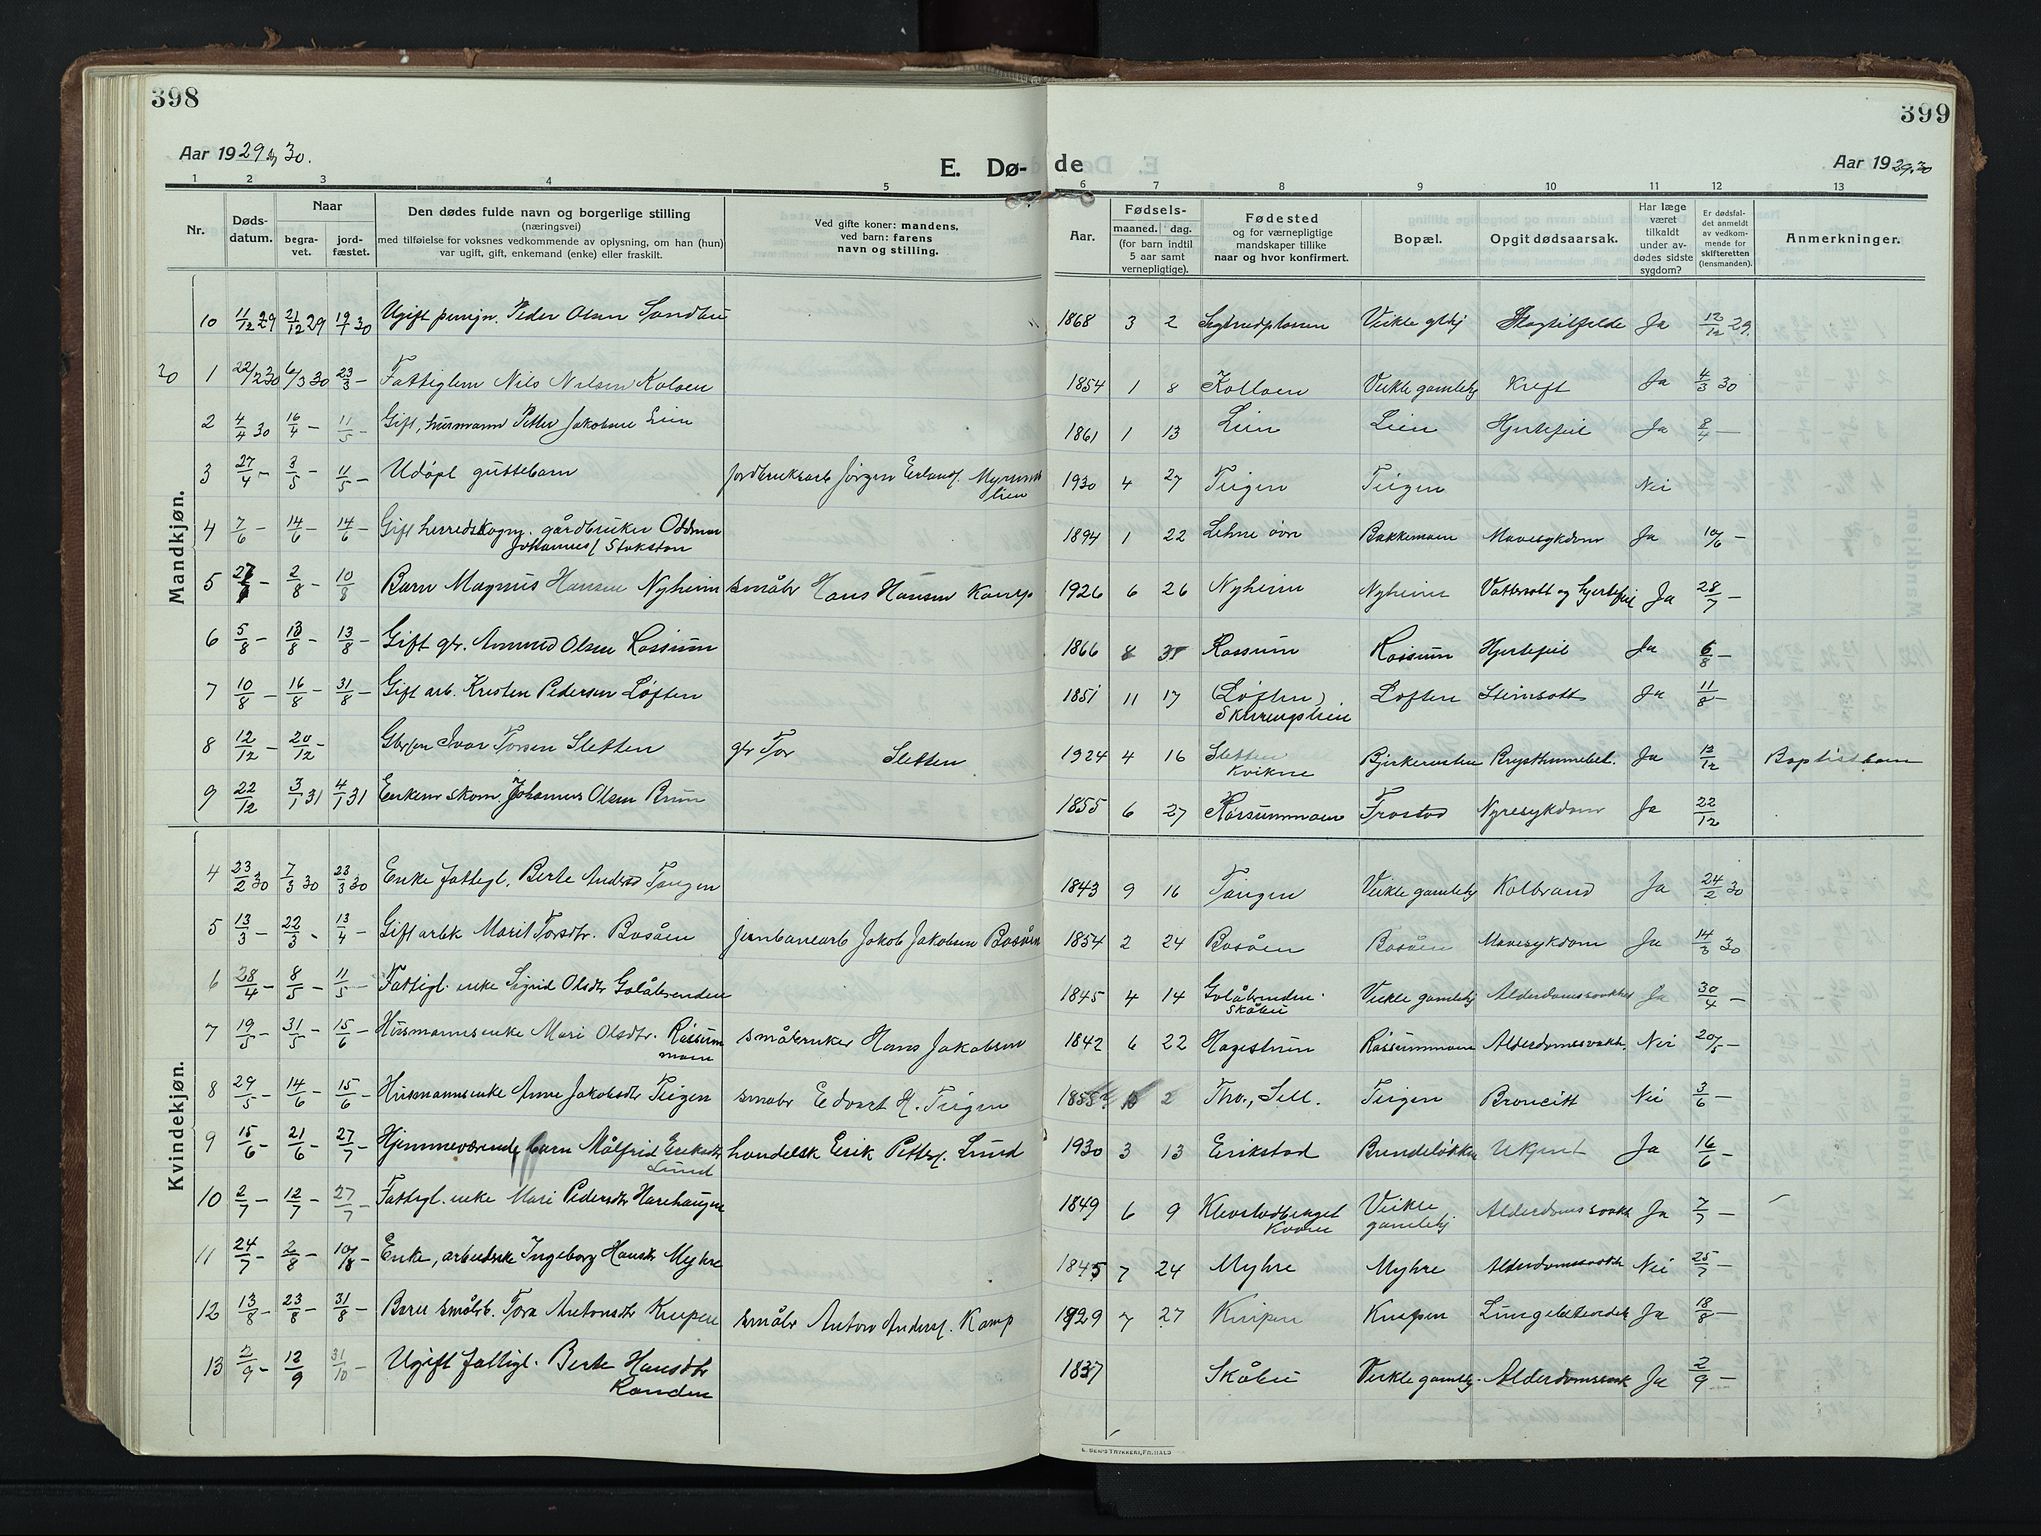 398
399
Aar 1929 og 30.
E. Dø-
de
Aar 1929.30
1 2 3 4 5 6 7 8 9 10 11 12 13
Nr.
Døds-
datum.
Naar
begra-
vet.
jord-
fæstet.
Den dødes fulde navn og borgerlige stilling
(næringsvei)
med tilføielse for voksnes vedkommende av oplysning, om han (hun)
var ugift, gift, enkemand (enke) eller fraskilt.
Ved gifte koner: mandens,
ved barn: farens
navn og stilling.
Aar.
Fødsels-
maaned. dag.
(for barn indtil
5 aar samt
vernepligtige).
Fødested
og for værnepligtige
mandskaper tillike
naar og hvor konfirmert.
Bopæl.
Opgit dødsaarsak.
Har læge
været
tilkaldt
under av-
dødes sidste
sygdom?
Er dødsfal-
det anmeldt
av vedkom-
mende for
skifteretten
(lensmanden).
Anmerkninger.
Mandkjøn.
10 11/12 29 21/12 29 19/1 30 Ugift Peder Olsen Sandbu 1868 3 2 Slagtilfelde Ja 12/12 29.
30 1 22/2 30 6/3 30 23/3 - Fattiglem Nils Nilsen Koloen 1854 1 8 Kolloen Veikle gamlehj Kreft Ja 4/3 30
2 4/4 30 16/4 - 11/5 - Gift, husmann Petter Jakobsen Lien 1861 1 13 Lien Lien Hjertefeil Ja 8/4 -
3 27/4 - 3/5 - 11/5 - Udøpt guttebarn jordbruksarb Jørgen Erlands. Myrmo
slien 1930 4 27 Teigen Teigen Nei
4 7/6 - 14/6 - 14/6 - Gift herredskogm. gårdbruker Oddmar
Johannes/ Stokstan 1894 1 22 Lehne øvre Bakkemoen Mavesykdom Ja 10/6 -
5 27/7 - 2/8 - 10/8 Barn Magnus Hansen Nyheim småbr Hans Hansen Kamp 1926 6 26 Nyheim Nyheim Vattersott og hjertefeil Ja 28/7 -
6 5/8 - 13/8 - 13/8 - Gift gbr. Amund Olsen Rossum 1866 8 31 Rossum Rossum Hjertefeil Ja 6/8 -
7 10/8 - 16/8 - 31/8 - Gift arb. Kristen Pedersen Løften 1851 11 17 Løften, Løften Stensott Ja 11/8 -
8 12/12 - 20/12 - Ivar Torsen Sletten gbr Tor Sletten 1924 4 16 Sletten
Kvikne Ja 12/12 Baptistbarn
9 22/12 3/1 31 4/1 31 Enkem skom. Johannes Olsen Brun 1855 6 27 Røssummoen Frostad Nyresykdom Ja 22/12
Kvindekjøn.
4 23/2 30 7/3 30 23/3 30 Enke fattigl. Berte Andersd Tangen 1843 9 16 Tangen Veikle gamlehj Kolbrand Ja 24/2 30
5 13/3 - 22/3 - 13/4 - Gift arbk Marit Torsdtr. Bosåen jernbanearb Jakob Jakobsen Bosåen 1854 2 24 Bosåen Bosåen Mavesykdom Ja 14/3 30
6 28/4 - 8/5 - 11/5 - Fattigl. enke Sigrid Olsdtr Golåbrenden 1845 4 14 Golåbrenden.
Skåbu Veikle gamlehj Alderdomssvakhet Ja 30/4 -
7 19/5 - 31/5 - 15/6 - Husmannsenke Mari Olsdtr. Røssum
moen småbruker Hans Jakobsen 1842 6 22 Hagestuen Røssummoen Alderdomssvakh. Nei 20/5 -
8 29/5 - 14/6 - 15/6 - Husmannsenke Anne Jakobsdtr Teigen småbr Edvart H. Teigen 2 Tho., Sell. Teigen Broncitt Nei 3/6 -
9 15/6 - 21/6 - 27/7 - Hjemmeværende barn Målfrid Eriksdtr
Lund handelsk Erik Petters. Lund 1930 3 13 Erikstad Brendeløkken Ukjent Ja 16/6 -
10 2/7 - 12/7 - 27/7 - Fattigl. enke Mari Pedersdtr Harehaugen 1849 6 9 Klevstadberget
Kvam Veikle
gamlehj Alderdomssvakh Ja 7/7 -
11 24/7 - 2/8 - 10/8 - Enke, arbeidske Ingeborg Hansdtr Myhre 1845 7 24 Myhre Myhre Alderdomssvakh Nei 25/7 -
12 13/8 - 23/8 - 31/8 - Barn småbr. Tora Antonsdtr Knipen småbr Anton Anders/. Kamp 1929 7 27 Knipen Knipen Lungebetendelse Ja 18/8 -
13 2/9 - 13/9 31/10 - Ugift fattigl. Berte Hansdtr
Randen 1837 Skåbu Veikle gamlehj. Alderdomssvak Ja 2/9 -
E. SEMS TRYKKERI, FR.HALD